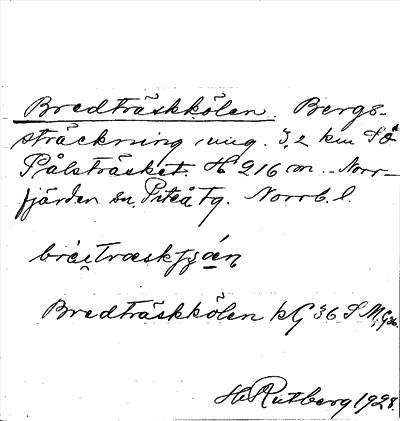 Bredträskkölen. Bergs-
sträckning, ung. 3,2 km SO
Pålsträsket. H 216 m. Norr-
fjärden sn. Piteå Tg. Norrb. l.
Bredträskkölen kG 36 S
H Rutberg 1928.